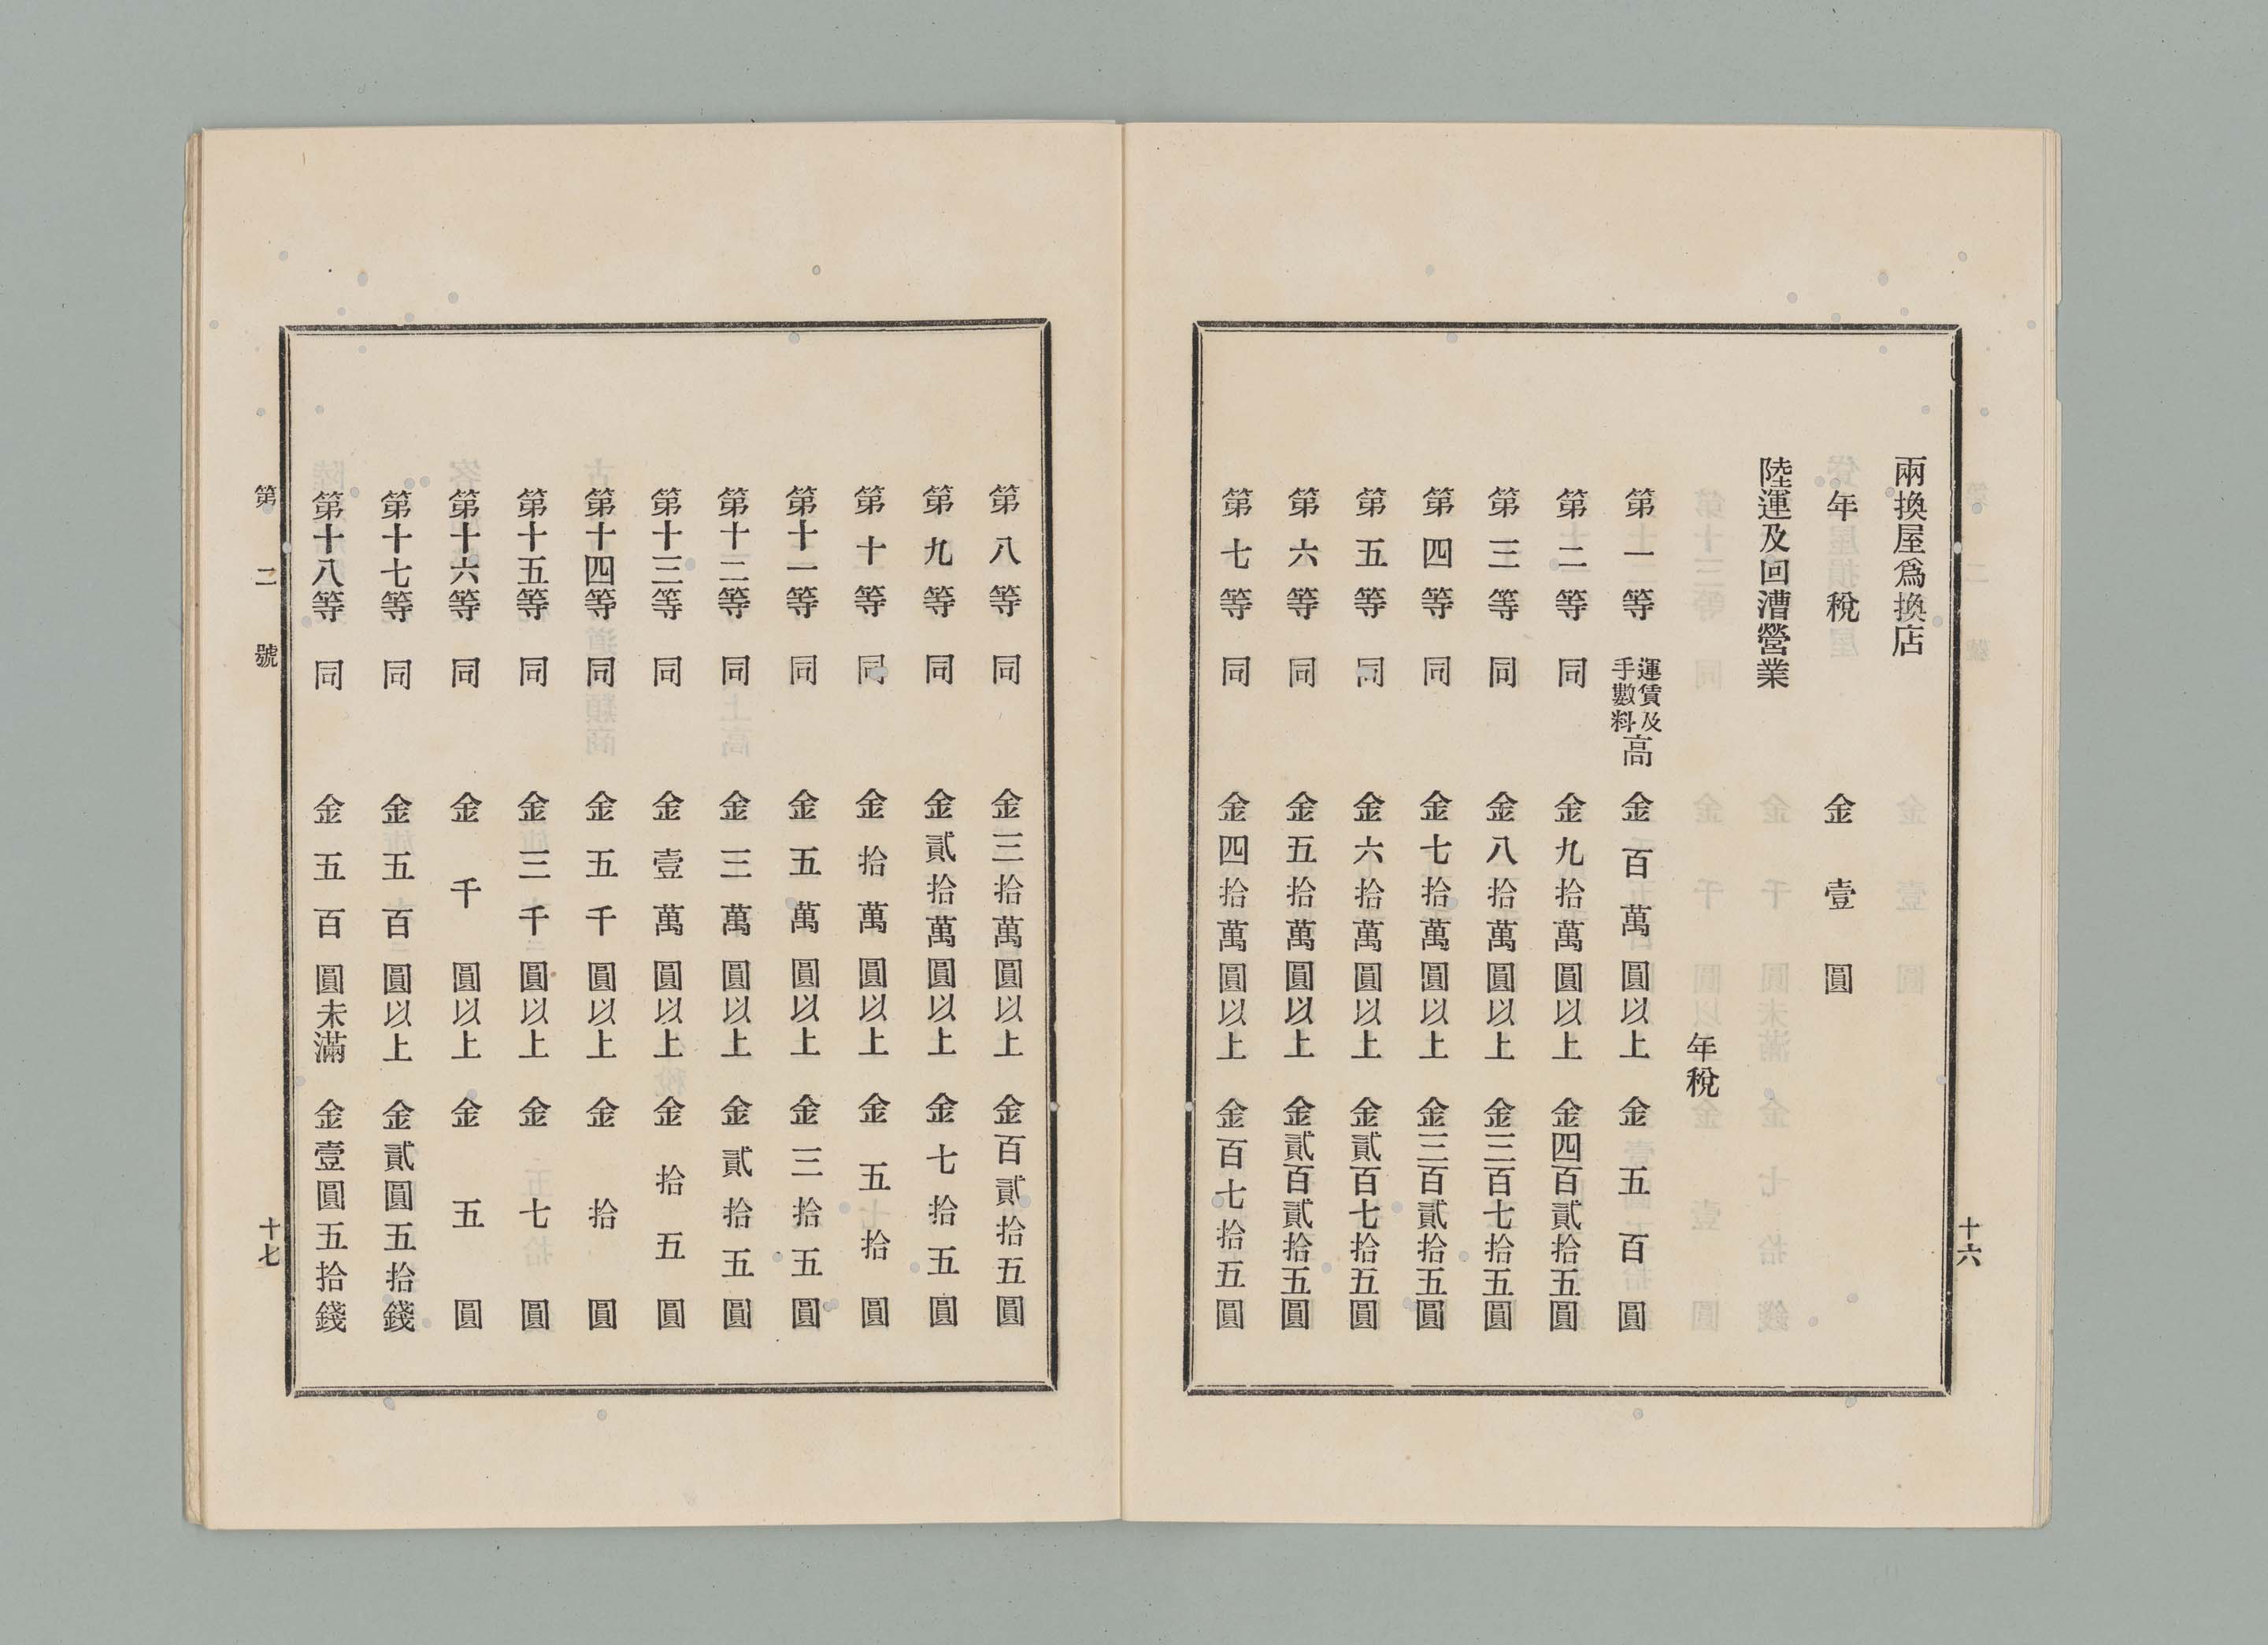 兩換屋爲換店
年稅 金壹圓
陸運及回漕營業
年稅
第一等 運賃及手數料高 金百萬圓以上 金五百圓
第二等 同 金九拾萬圓以上 金四百貳拾五圓
第三等 同 金八拾萬圓以上 金三百七拾五圓
第四等 同 金七拾萬圓以上 金三百貳拾五圓
第五等 同 金六拾萬圓以上 金貳百七拾五圓
第六等 同 金五拾萬圓以上 金貳百貳拾五圓
第七等 同 金四拾萬圓以上 金百七拾五圓
十六
第八等 同 金三拾萬圓以上 金百貳拾五圓
第九等 同 金貳拾萬圓以上 金七拾五圓
第十等 同 金拾萬圓以上 金五拾圓
第十一等 同 金五萬圓以上 金三拾五圓
第十二等 同 金三萬圓以上 金貳拾五圓
第十三等 同 金壹萬圓以上 金拾五圓
第十四等 同 金五千圓以上 金拾圓
第十五等 同 金三千圓以上 金七圓
第十六等 同 金千圓以上 金五圓
第十七等 同 金五百圓以上 金貳圓五拾錢
第十八等 同 金五百圓未滿 金壹圓五拾錢
第二號 十七